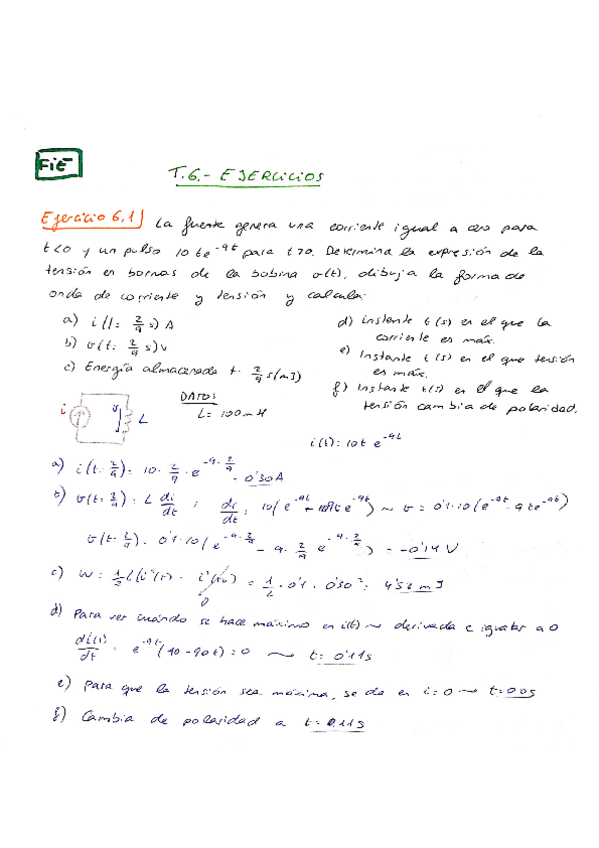 FIE
T.6.- EJERCICIOS
Ejercicio 6.1) La fuente genera una corriente igual a cero para
t<0 y un pulso 10te^-9t para t>0. Determina la expresión de la
tensión en bornas de la bobina v(t), dibuja la forma de
onda de corriente y tensión y calcula:
a) i(t= 2/9 s) A
b) v(t= 2/9 s) v
c) Energía almacenada t= 2/9 s (mJ)
d) instante t(s) en el que la
corriente es máx.
e) Instante t(s) en el que tensión
es máx.
f) Instante t(s) en el que la
tensión cambia de polaridad.
i v L
DATOS
L= 100mH
i(t)= 10t e^-9t
a) i(t= 2/9)= 10· 2/9 ·e^-9·2/9 = 0'30A
b) v(t= 2/9)= L di/dt ; di/dt = 10(e^-9t e^-9t) ~ v = 0'1·10(e^-9t - 9te^-9t)
v(t= 2/9)= 0'1·10(e^-9·2/9 - 9· 2/9 e^-9·2/9) = -0'14 V
c) W= 1/2 L(i²(t) - i²(t0)) = 1/2 · 0'1 · 0'30² = 4'52 mJ
0
d) Para ver cuándo se hace máximo en i(t) ~ derivada e igualar a 0
di(t)/dt = e^-9t (10-90t)=0 ~ t= 0'11s
e) Para que la tensión sea máxima, se da en i=0 ~ t=0.0s
f) Cambia de polaridad a t=0.11s